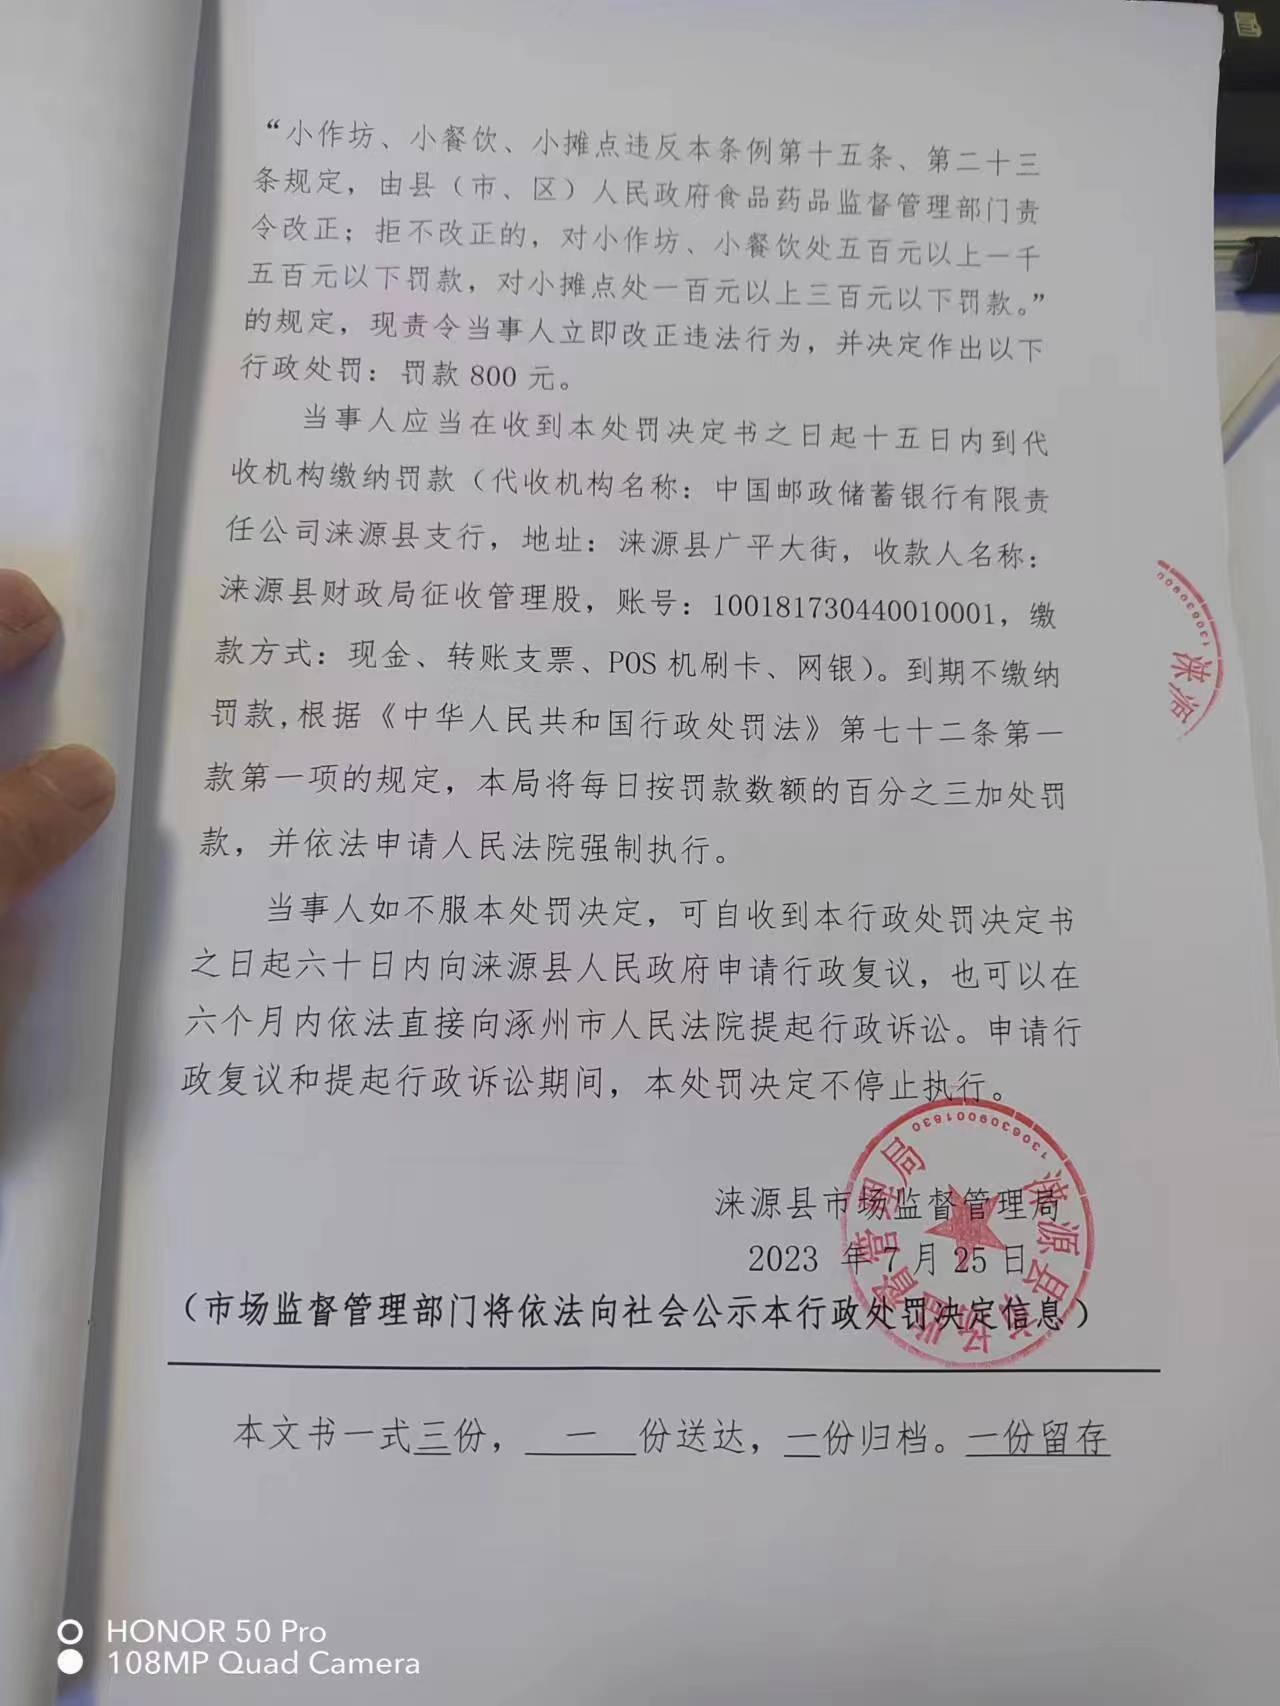 “小作坊、小餐饮、小摊点违反本条例第十五条、第二十三
条规定，由县（市、区）人民政府食品药品监督管理部门责
令改正；拒不改正的，对小作坊、小餐饮处五百元以上一千
五百元以下罚款，对小摊点处一百元以上三百元以下罚款。”
的规定，现责令当事人立即改正违法行为，并决定作出以下
行政处罚：罚款 800 元。
当事人应当在收到本处罚决定书之日起十五日内到代
收机构缴纳罚款（代收机构名称：中国邮政储蓄银行有限责
任公司涞源县支行，地址：涞源县广平大街，收款人名称：
涞源县财政局征收管理股，账号：100181730440010001，缴
款方式：现金、转账支票、POS 机刷卡、网银）。到期不缴纳
罚款，根据《中华人民共和国行政处罚法》第七十二条第一
款第一项的规定，本局将每日按罚款数额的百分之三加处罚
款，并依法申请人民法院强制执行。
当事人如不服本处罚决定，可自收到本行政处罚决定书
之日起六十日内向涞源县人民政府申请行政复议，也可以在
六个月内依法直接向涿州市人民法院提起行政诉讼。申请行
政复议和提起行政诉讼期间，本处罚决定不停止执行。
涞源县市场监督管理局
2023 年 7 月 25 日
（市场监督管理部门将依法向社会公示本行政处罚决定信息）
本文书一式三份，一份送达，一份归档。一份留存
涞源县市场监督管理局
1306309001630
涞源
HONOR 50 Pro
108MP Quad Camera